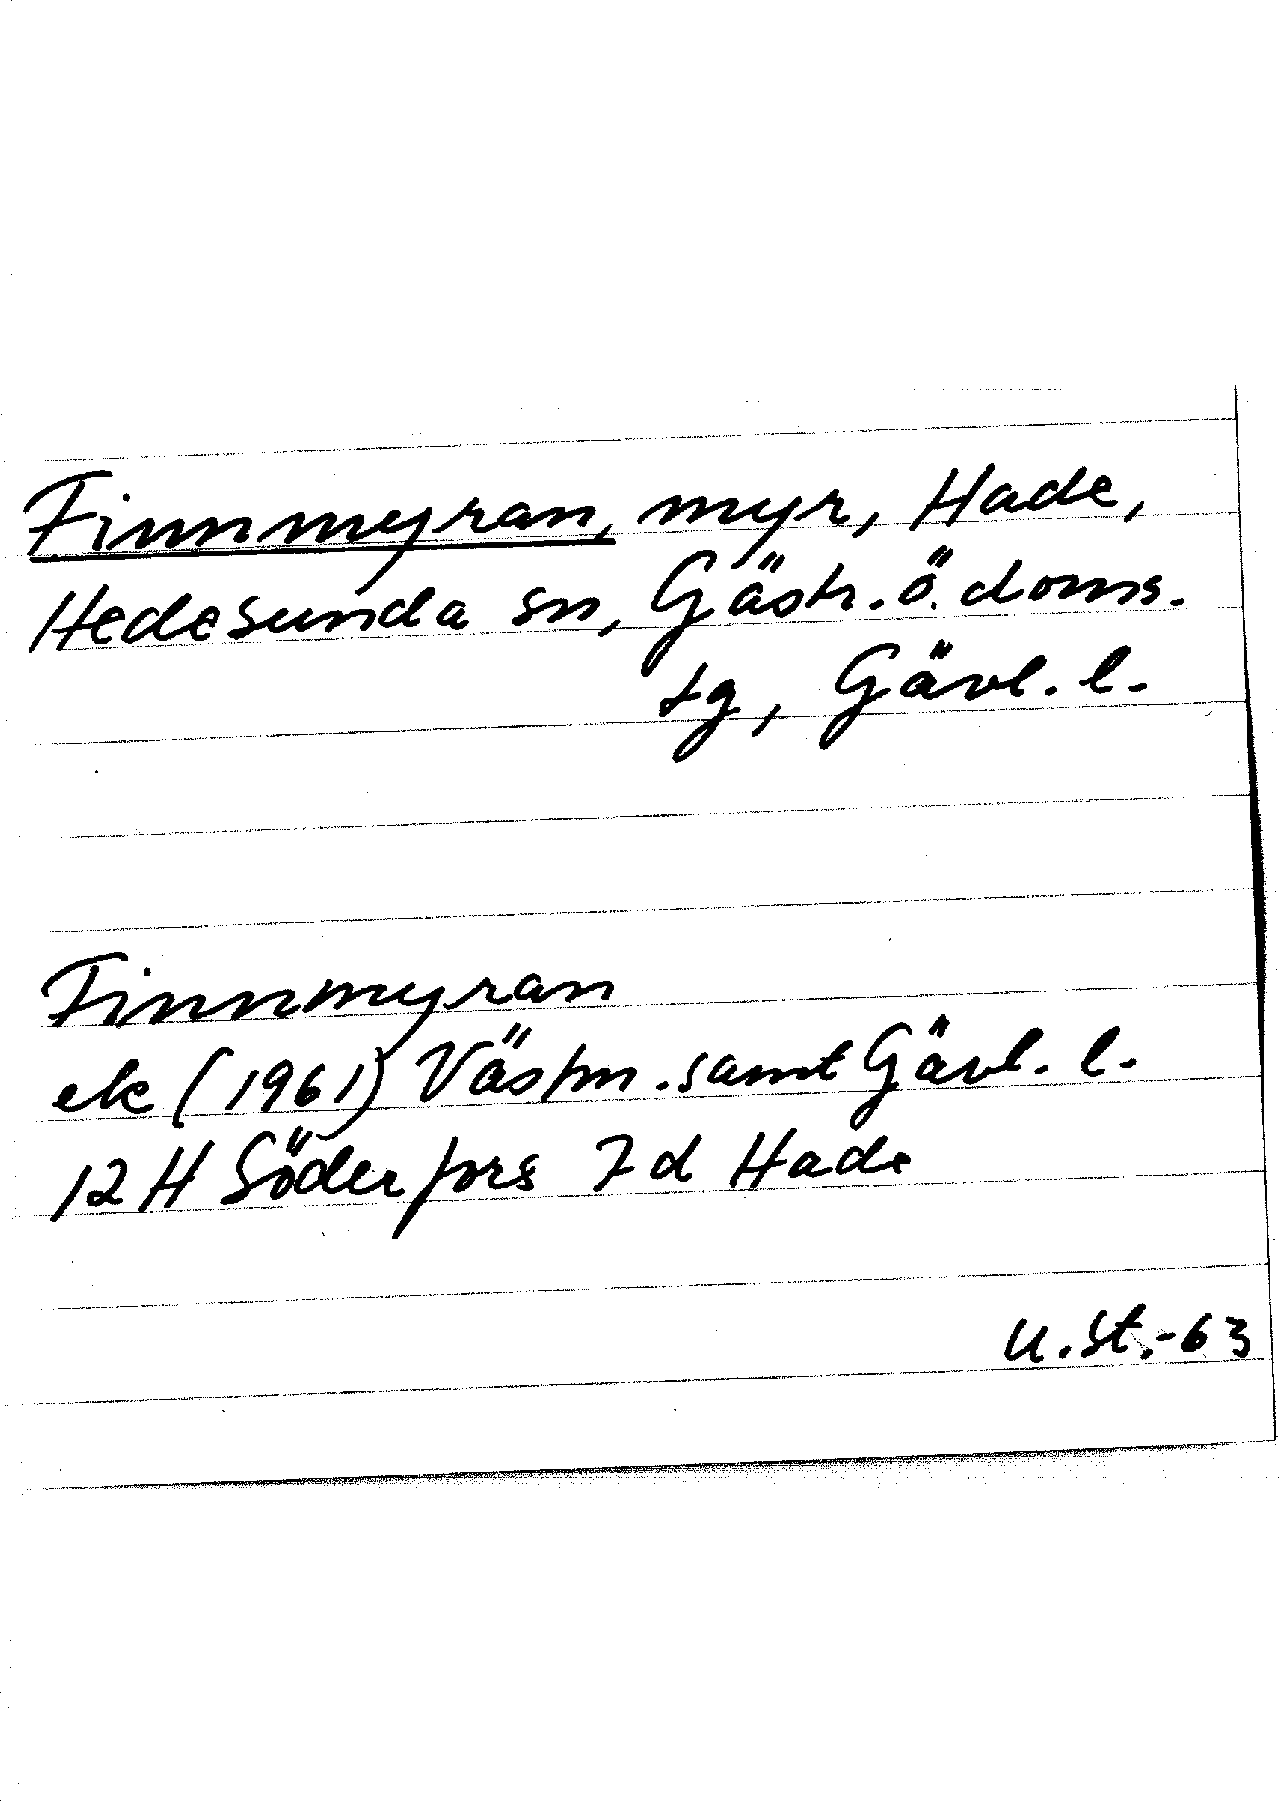 Finnmyran, myr, Hade,
Hedesunda sn, Gästr. ö. doms.
tg, Gävl. l.
Finnmyran
ek (1961) Västm. samt Gävl. l.
12 H Söderfors 7 d Hade
U. St.-63